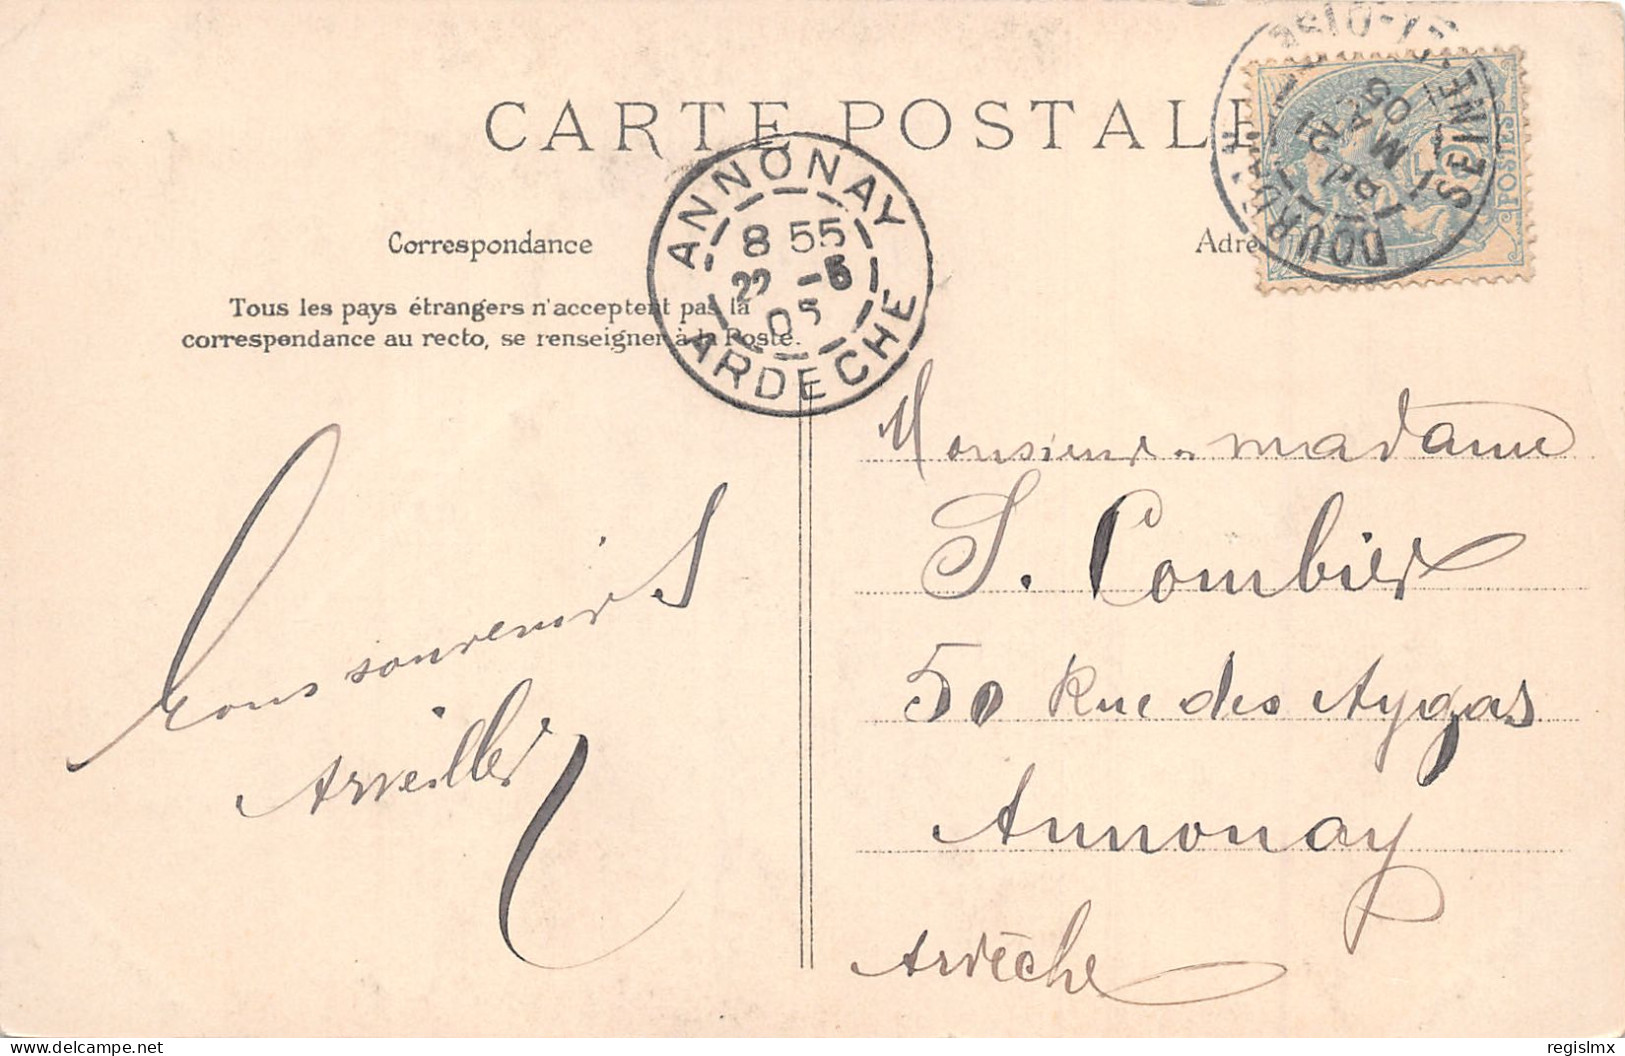 CARTE POSTALE
Correspondance
Tous les pays étrangers n'acceptent pas la
correspondance au recto, se renseigner à la Poste.
ANNONAY
8 55
22 -5
05
ARDECHE
DOURDAN
21
MAI
05
SEINE-ET-OISE
POSTES
Monsieur madame
S. Combier
50 Rue des Aygas
Annonay
Ardèche
souvenirs
Arveiller
regislmx
delcampe.net